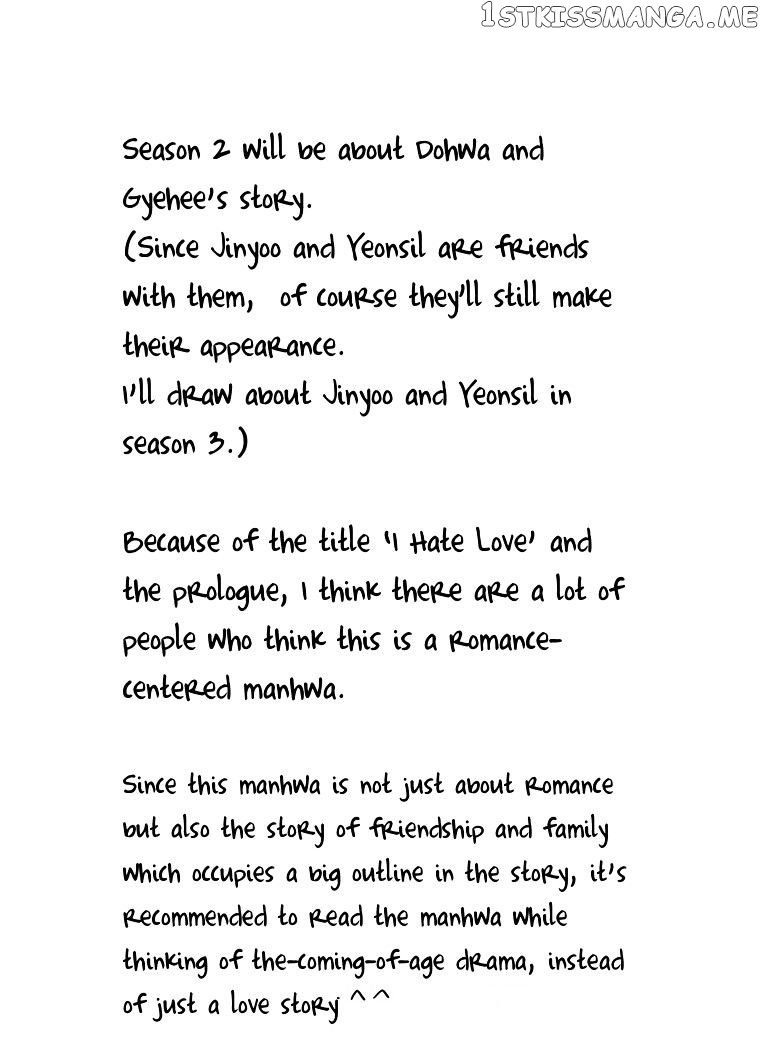 1STKISSMANGA.ME
Season 2 will be about Dohwa and
Gyehee's story.
(Since Jinyoo and Yeonsil are friends
with them, of course they'll still make
their appearance.
I'll draw about Jinyoo and Yeonsil in
season 3.)
Because of the title 'I Hate Love' and
the prologue, I think there are a lot of
people who think this is a romance-
centered manhwa.
Since this manhwa is not just about romance
but also the story of friendship and family
which occupies a big outline in the story, it's
recommended to read the manhwa while
thinking of the-coming-of-age drama, instead
of just a love story ^ ^